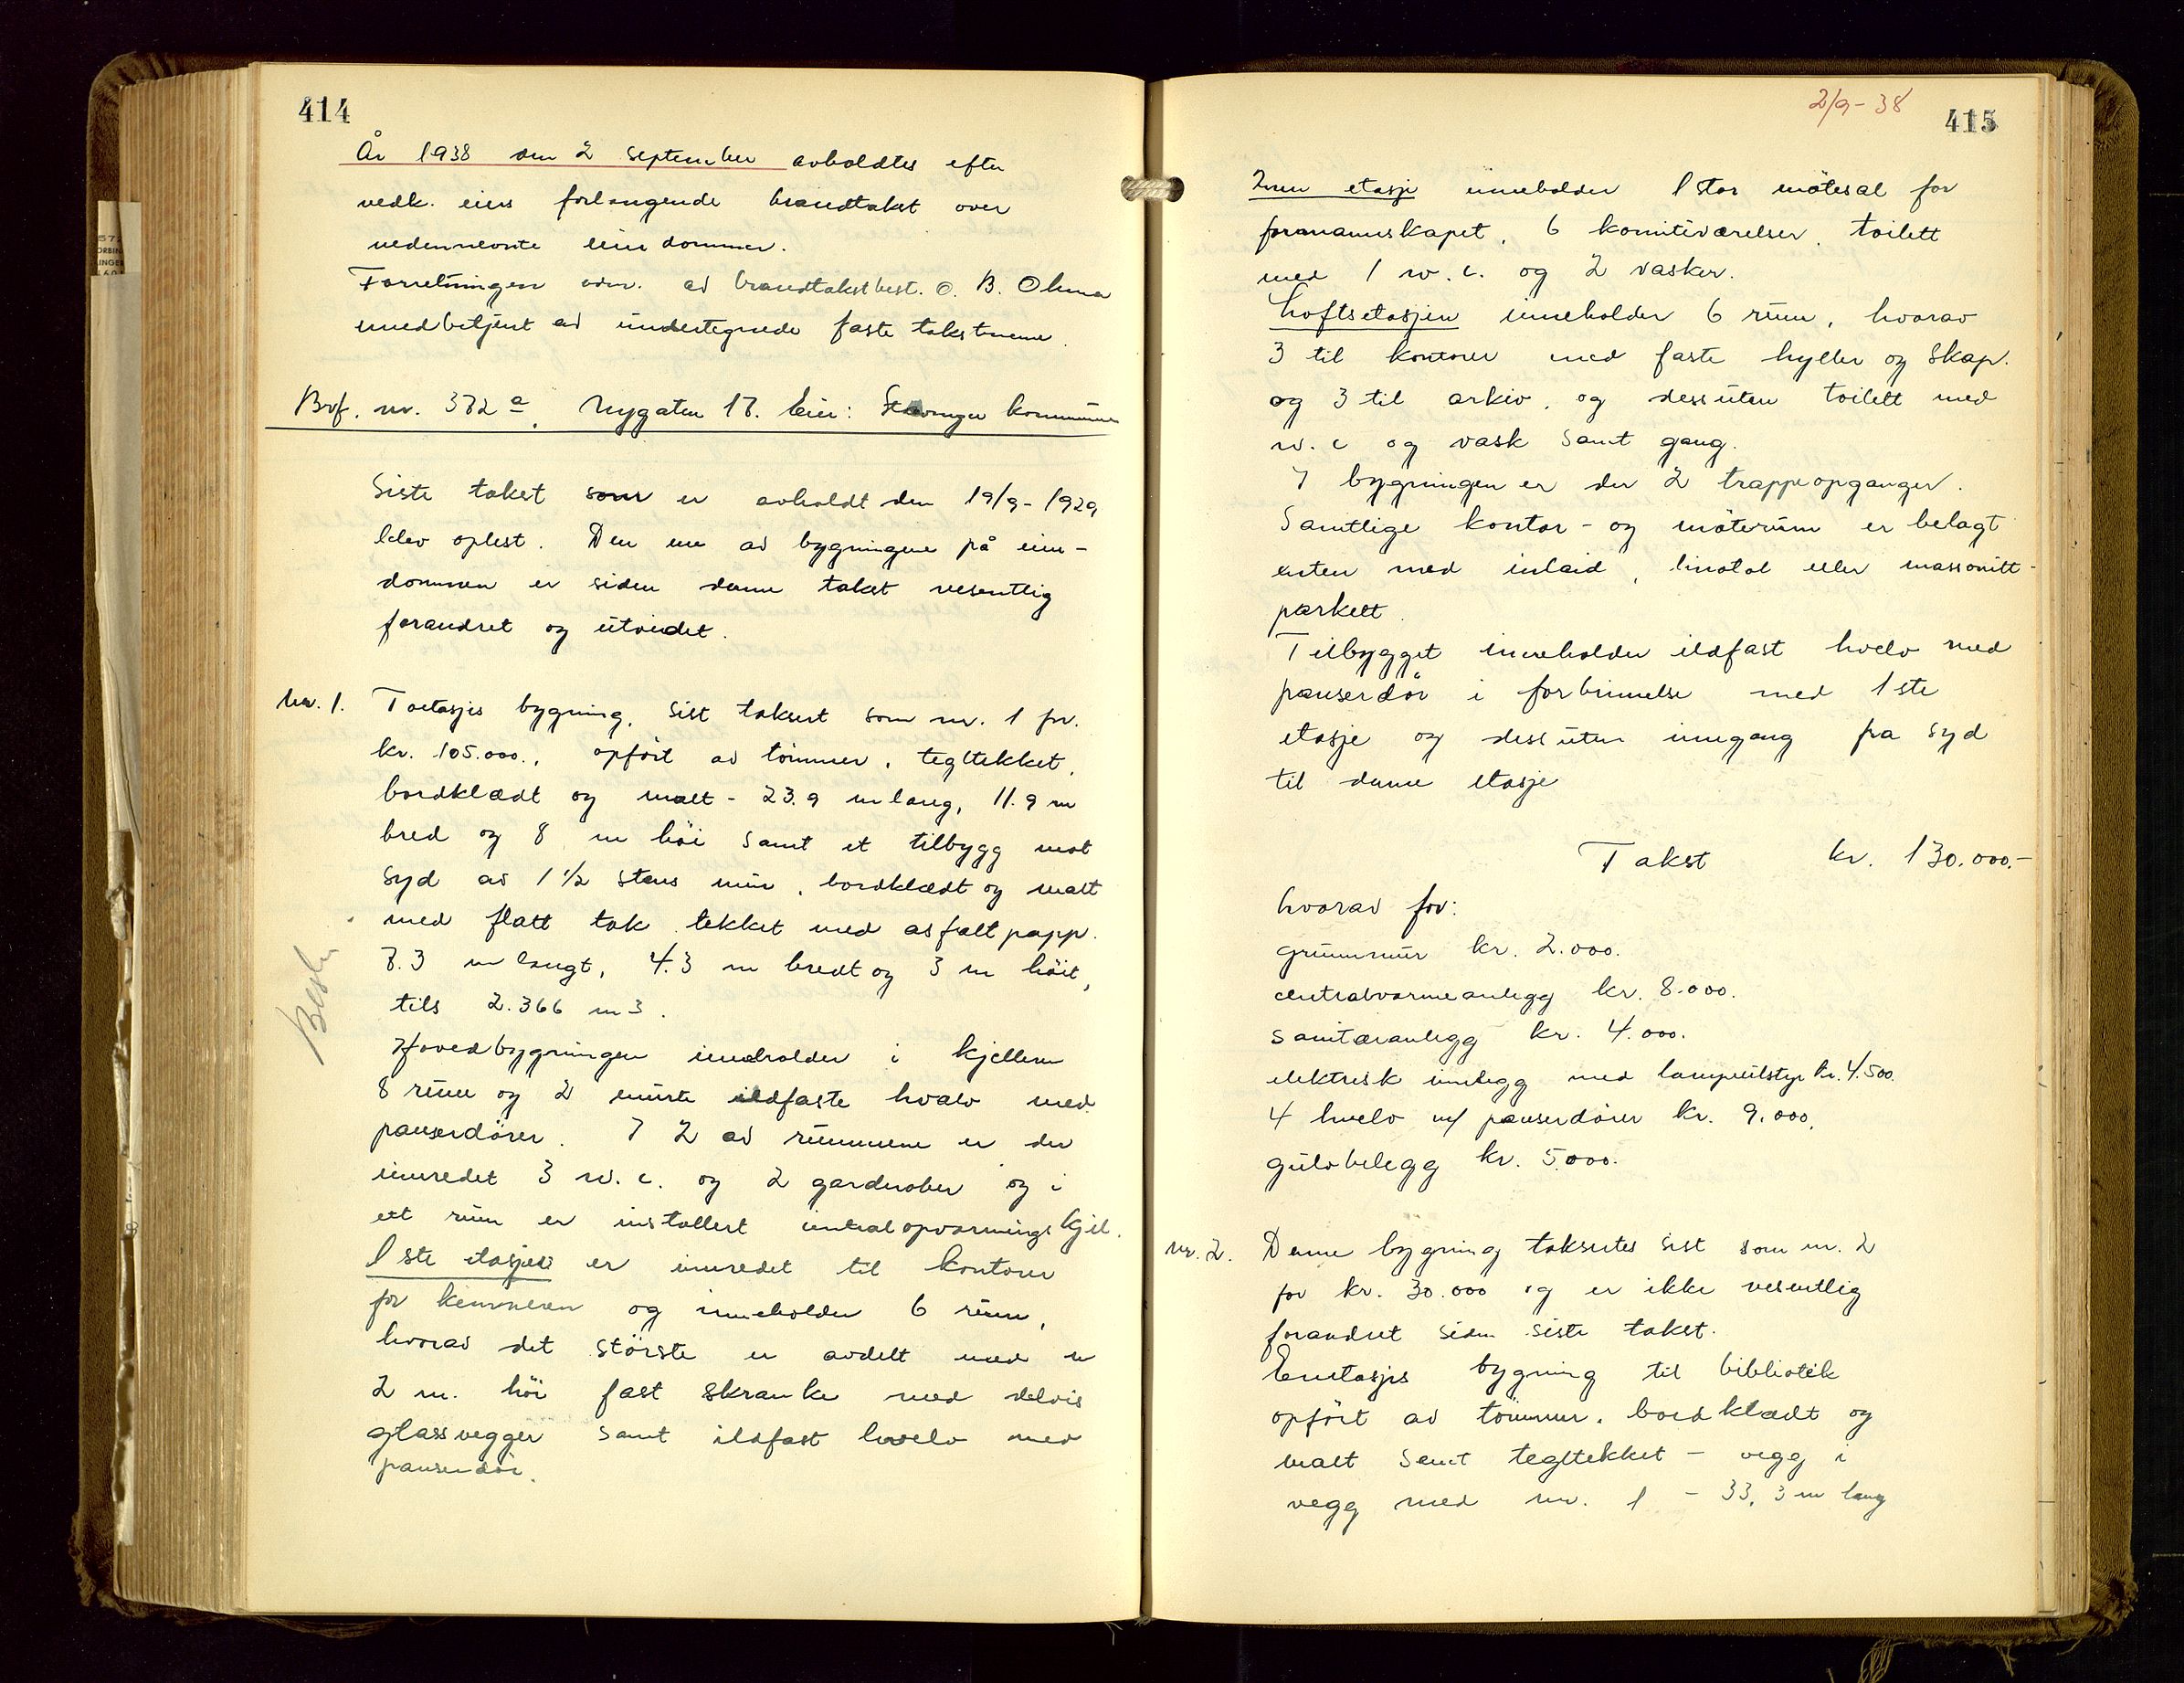 414
År 1938 den 2 september avholdtes efter
vedk. eiers forlangende brandtakst over
nedennevnte eiendommer.
Forretningen adm. av brandtakstbest. O. B. Olena
medbetjent av undertegnede faste takstmenn.
Brf. nr. 372 a, Nygaten 17. Eier: Stavanger kommune
Siste takst som er avholdt den 19/9-1929
blev oplest. Den ene av bygningene på eien-
dommen er siden denne takst vesentlig
forandret og utvidet.
Nr. 1. Toetasjes bygning, sist taksert som nr. 1 for
kr. 105.000., opført av tømmer, tegltekket,
bordklædt og malt - 23.9 m lang, 11.9 m
bred og 8 m höi samt et tilbygg mot
syd av 1 1/2 stens mur, bordklædt og malt
med flatt tak tekket med asfaltpapp.
7.3 m langt, 4.3 m bredt og 3 m höit,
tils 2.366 m3.
Hovedbygningen inneholder i kjelleren
8 rum og 2 murte ildfaste hvelv med
panserdörer. I 2 av rummene er der
innredet 3 w.c. og 2 garderober og i
ett rum er installert sentralopvarmingskjel.
1ste etasjen er innredet til kontorer
for kemneren og inneholder 6 rum,
hvorav det störste er avdelt med en
2 m. höi fast skranke med delvis
glassvegger samt ildfast hvelv med
panserdör.
2/9-38
415
2nen etasje inneholder 1 stor mötesal for
formannskapet, 6 komiteværelser, toilett
med 1 w.c. og 2 vasker.
Loftsetasjen inneholder 6 rum, hvorav
3 til kontorer med faste hyller og skap.
og 3 til arkiv, og dessuten toilett med
w.c og vask samt gang.
I bygningen er der 2 trappeopganger.
Samtlige kontor- og möterum er belagt
enten med inlaid, linotol eller massonitt-
parkett.
Tilbygget inneholder ildfast hvelv med
panserdör i forbinnelse med 1ste
etasje og dessuten inngang fra syd
til denne etasje
Takst kr. 130.000.-
hvorav for:
grunnmur kr. 2.000.
centralvarmeanlegg kr. 8.000.
sanitæranlegg kr. 4.000.
elektrisk innlegg med lampeutstyr kr. 4.500.
4 hvelv m/ panserdörer kr. 9.000.
gulvbelegg kr. 5.000.
Nr. 2. Denne bygning taksertes sist som nr. 2
for kr. 30.000 og er ikke vesentlig
forandret siden siste takst.
Enetasjes bygning til bibliotek
opfört av tömmer, bordklædt og
malt samt tegltekket - vegg i
vegg med nr. 1 - 33,3 m lang